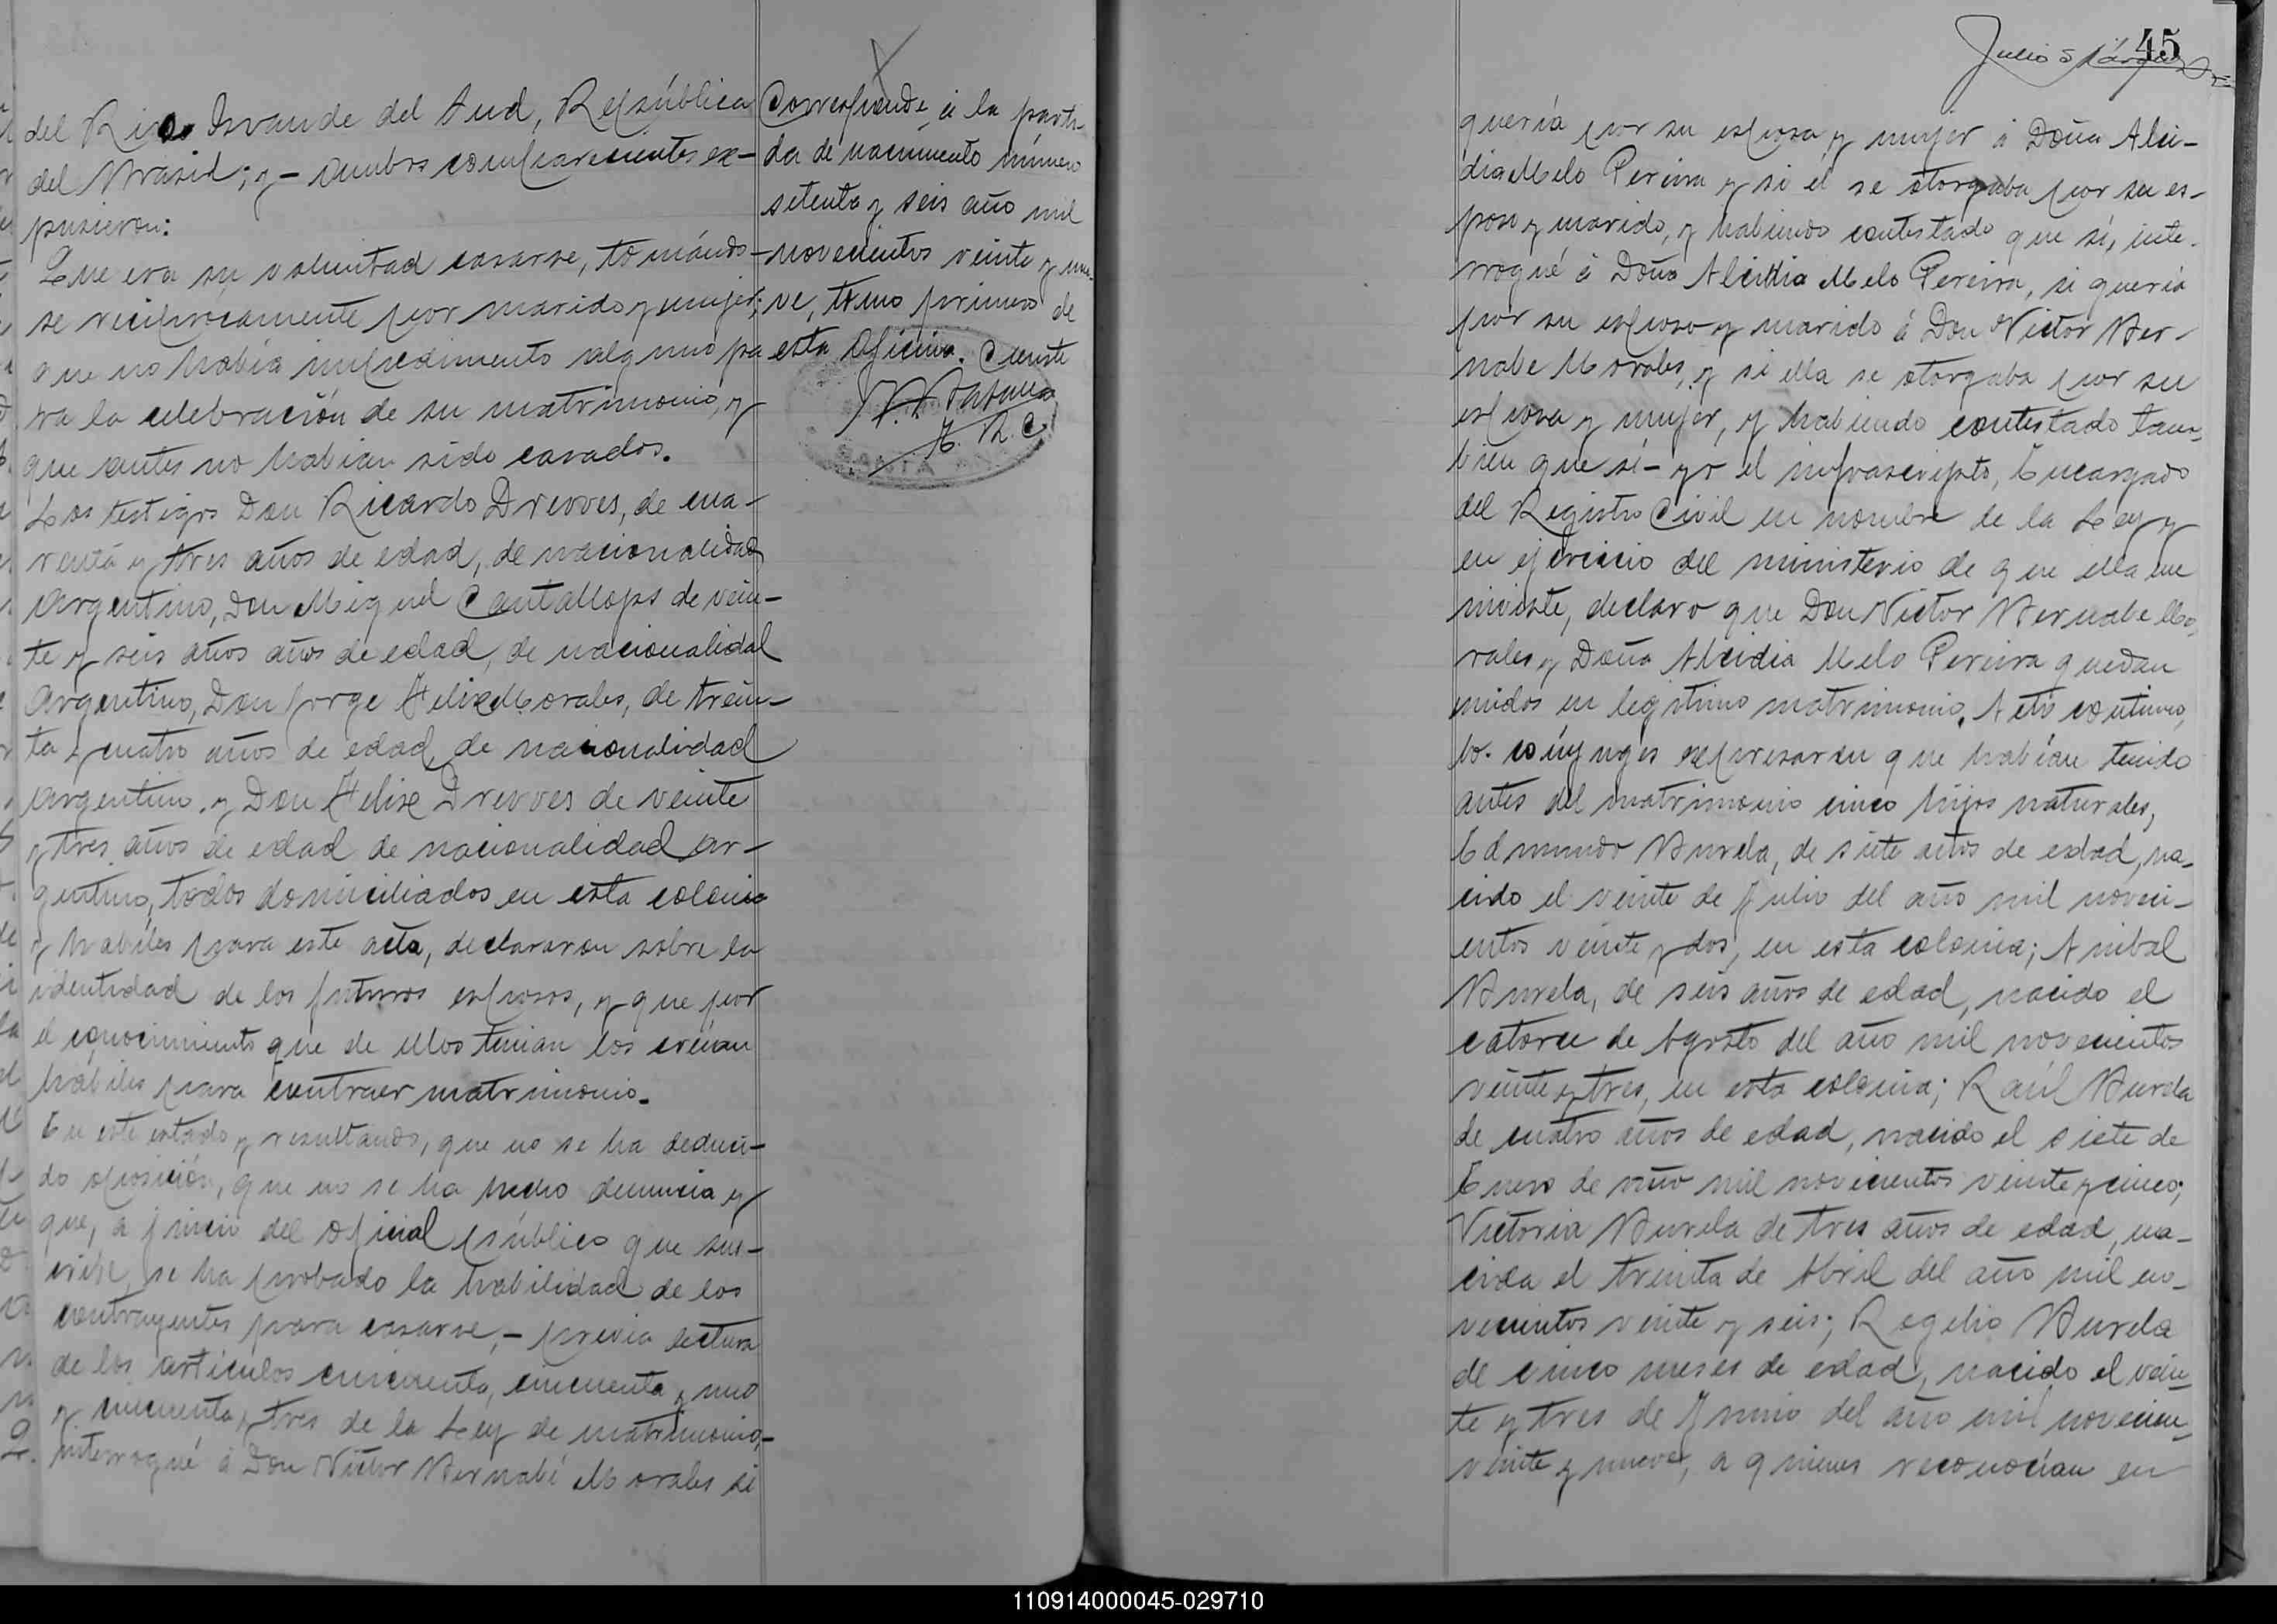 del Rio Grande del Sud, República
del Brasil; y - ambos comparecientes ex-
pusieron:
Que era su voluntad casarse, tomándo-
se recíprocamente por marido y mujer;
que no había impedimento alguno pa
ra la celebración de su matrimonio, y
que antes no habían sido casados.
Los testigos Don Ricardo Drewes, de cua-
renta y tres años de edad, de nacionalidad
Argentino, Don Miguel Cantallops de vein-
te y seis años años de edad, de nacionalidad
Argentino, Don Jorge Felix Morales, de trein-
ta y cuatro años de edad, de nacionalidad
Argentino, y Don Felix Drewes de veinte
y tres años de edad de nacionalidad Ar-
gentino, todos domiciliados en esta colonia
y habiles para este acto, declararon sobre la
identidad de los futuros esposos, y que por
el conocimiento que de ellos tenian los creían
hábiles para contraer matrimonio.
En este estado y resultando, que no se ha deduci-
do oposición, que no se ha hecho denuncia y
que, a juicio del oficial público que sus-
cribe, se ha probado la habilidad de los
contrayentes para casarse, - previa lectura
de los articulos cincuenta, cincuenta y uno
y cincuenta y tres de la Ley de matrimonio,-
interrogué á Don Victor Bernabé Morales si
Corresponde á la parti-
da de nacimiento número
setenta y seis año mil
novecientos veinte y nue-
ve, tomo primero de
esta Oficina. Conste
E. R. C.
SANTA ANA
45
quería por su esposa y mujer á Doña Alci-
dia Melo Pereira y si él se otorgaba por su es-
poso y marido, y habiendo contestado que sí, inte-
rrogué á Doña Alcidia Melo Pereira, si quería
por su esposo y marido á Don Victor Ber-
nabe Morales, y si ella se otorgaba por su
esposa y mujer, y habiendo contestado tam-
bien que sí - yo el infrascripto, Encargado
del Registro Civil en nombre de la Ley y
en ejercicio del ministerio de que ella me
inviste, declaro que Don Victor Bernabe Mo-
rales y Doña Alcidia Melo Pereira quedan
unidos en legitimo matrimonio. Acto continuo,
los cónyuges expresaron que habían tenido
antes del matrimonio cinco hijos naturales,
Edmundo Burela, de siete años de edad, na-
cido el veinte de Julio del año mil noveci-
entos veinte y dos, en esta colonia; Anibal
Burela, de seis años de edad, nacido el
catorce de Agosto del año mil novecientos
veinte y tres, en esta colonia; Raúl Burela
de cuatro años de edad, nacido el siete de
Enero de año mil novecientos veinte y cinco;
Victoria Burela de tres años de edad, na-
cida el treinta de Abril del año mil no-
vecientos veinte y seis; Rogelio Burela
de cinco meses de edad, nacido el vein-
te y tres de Junio del año mil novecien-
veinte y nueve, a quienes reconocían en
110914000045-029710